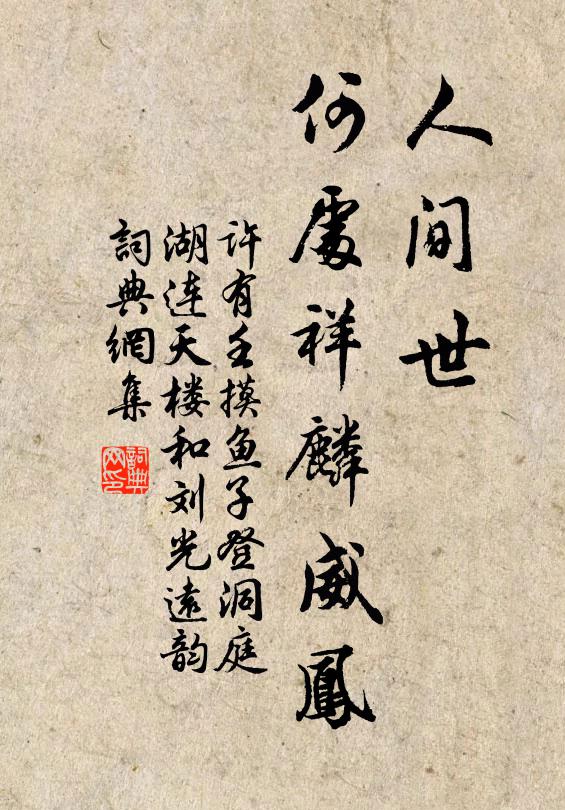 人間世
何處祥麟威鳳
许有壬摸鱼子登洞庭
湖连天楼和刘光遠韵
詞典網集
詞典网印